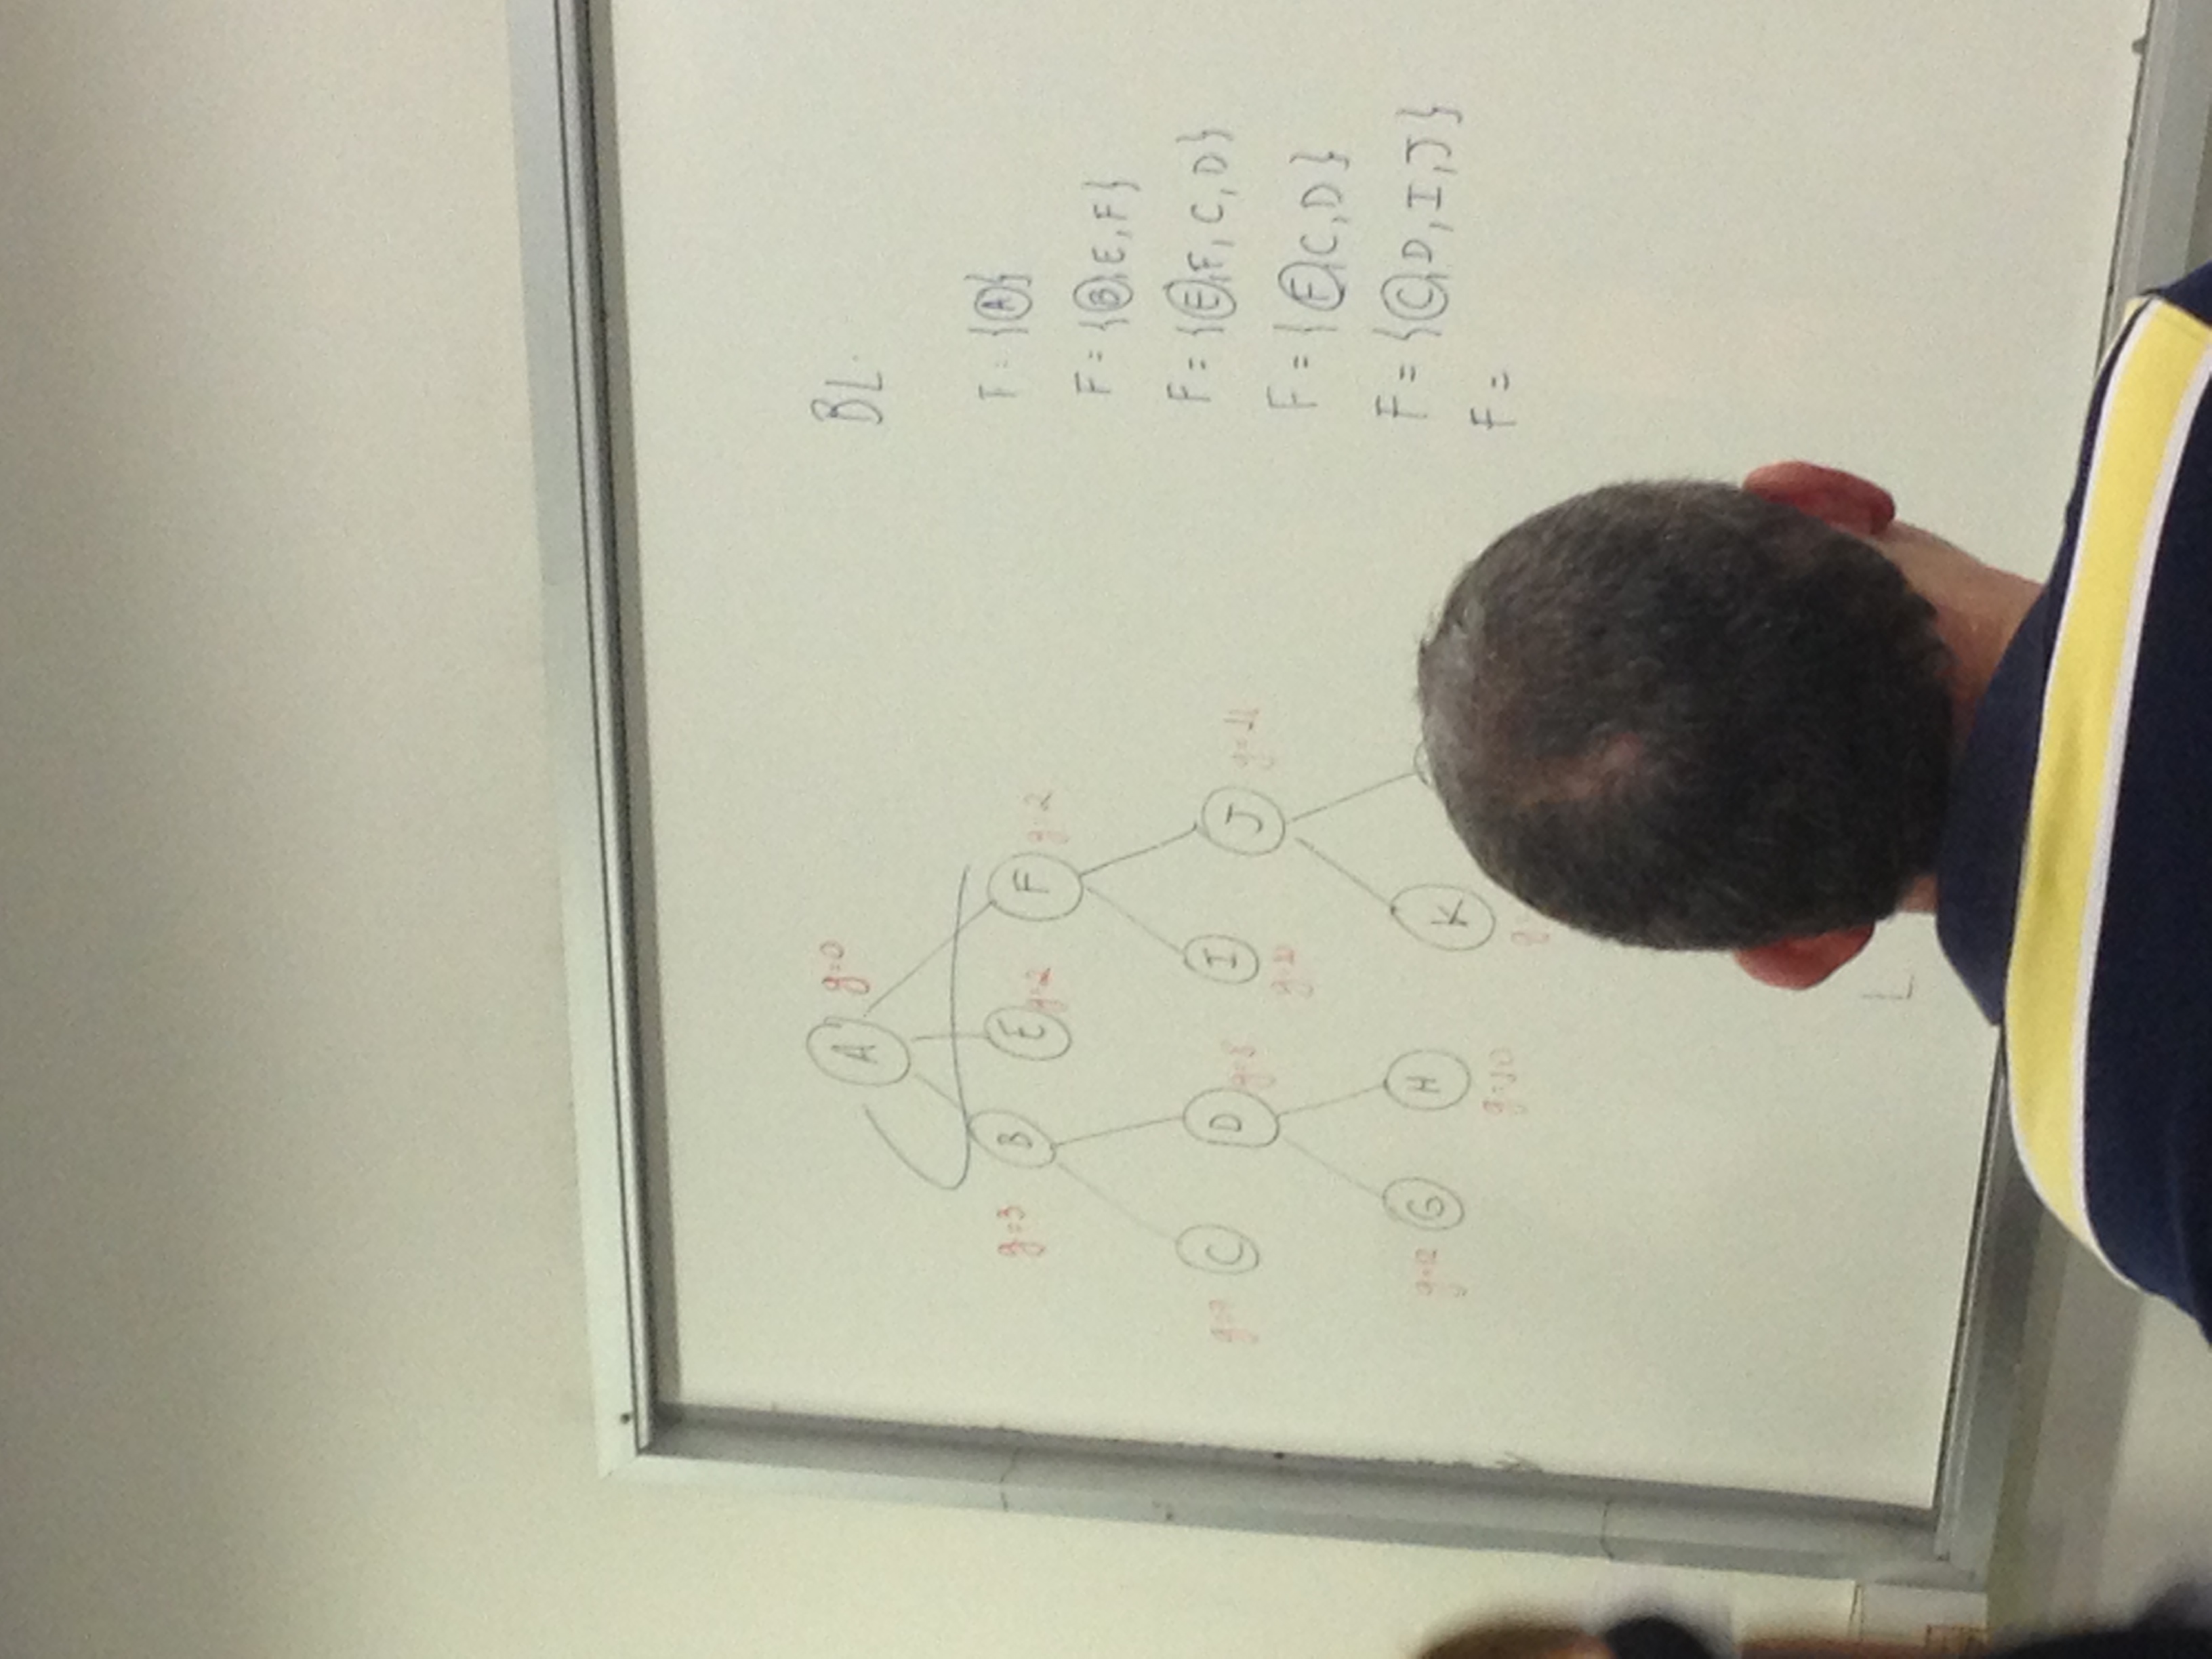 A g=0
B g=3
E g=2
F g=2
C
D g=8
I
J g=11
G g=12
H g=10
K
L
BL.
F = {A}
F = {B, E, F}
F = {E, F, C, D}
F = {F, C, D}
F = {C, D, I, J}
F =